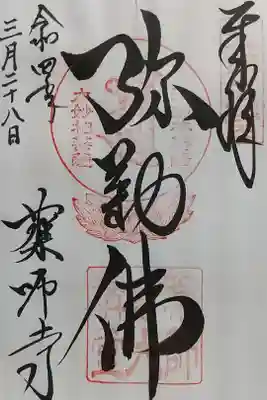 奉拝
弥勒佛
令和四年
三月二十八日
薬師寺